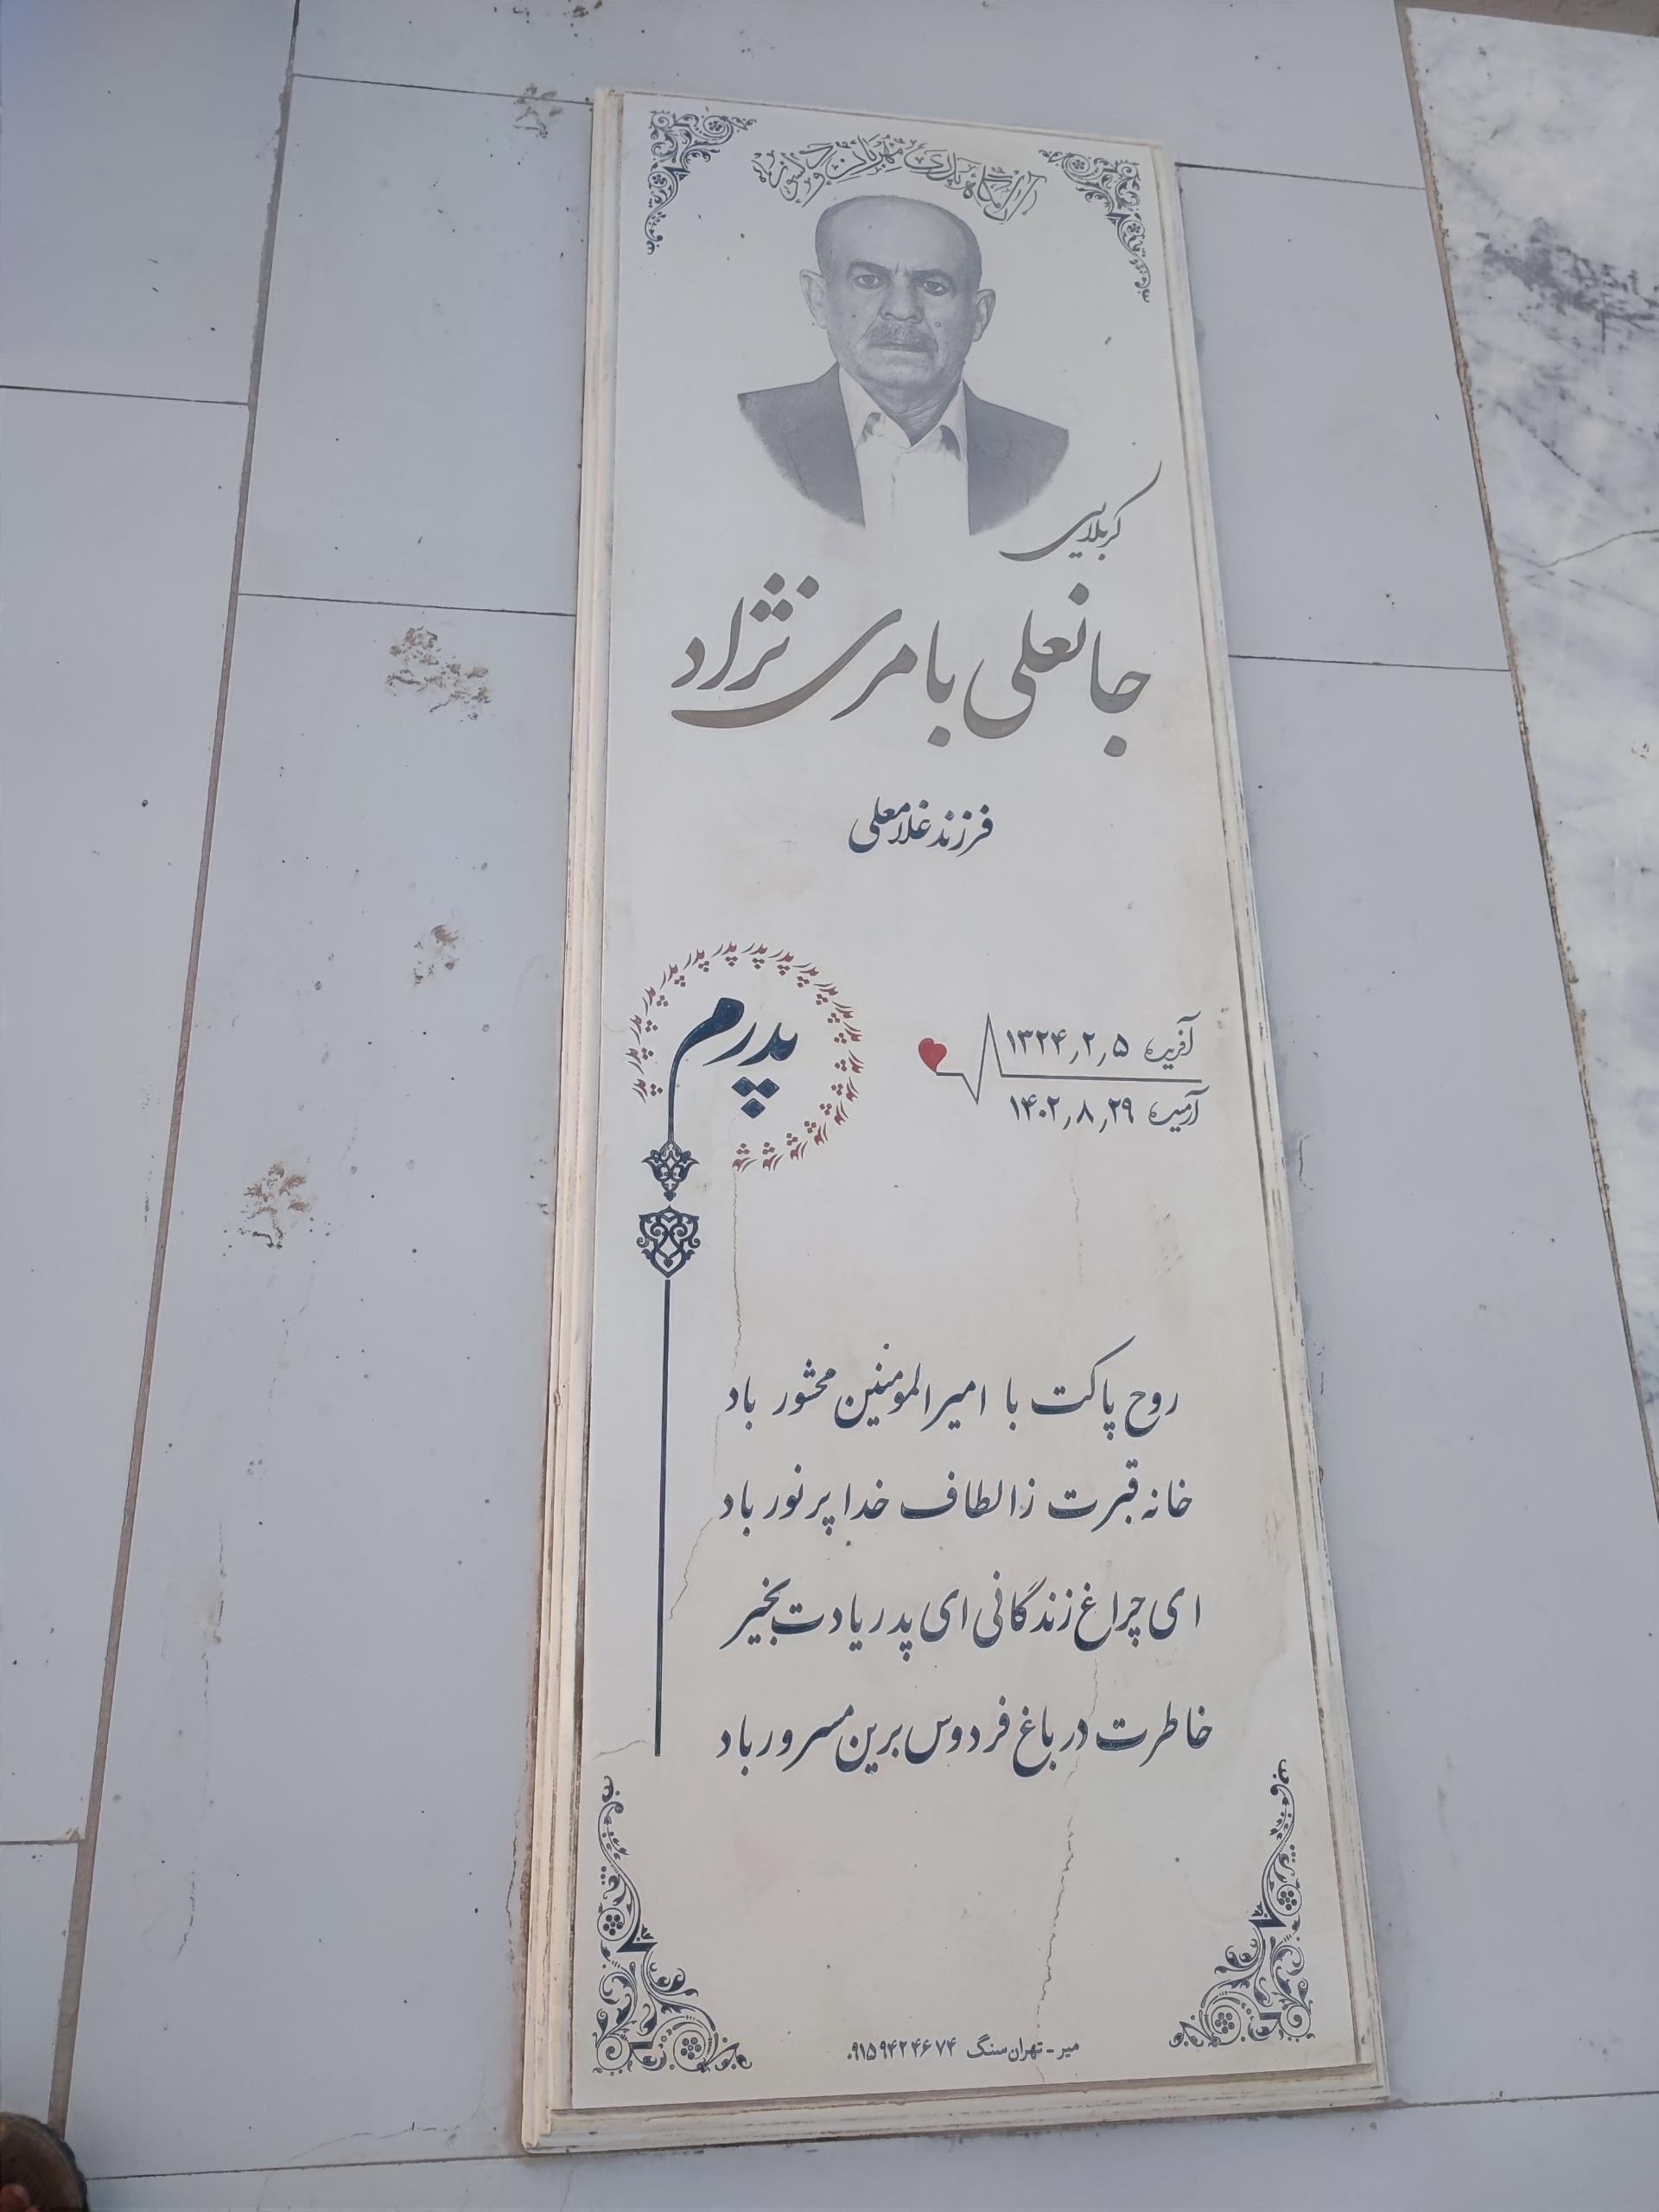 آرامگاه پدری مهربان و دلسوز
کربلایی
جانعلی بامری نژاد
فرزند غلامعلی
پدر پدر پدر پدر پدر پدر پدر پدر پدر پدر پدر پدر پدر پدر پدر پدر پدر پدر پدر پدر
پدرم
آفریده ۱۳۲۴٫۲٫۵
آرمیده ۱۴۰۲٫۸٫۲۹
روح پاکت با امیرالمومنین محشور باد
خانه قبرت زالطاف خدا پر نور باد
ای چراغ زندگانی ای پدر یادت بخیر
خاطرت در باغ فردوس برین مسرور باد
میر - تهران سنگ ۰۹۱۵۹۴۲۴۶۷۴